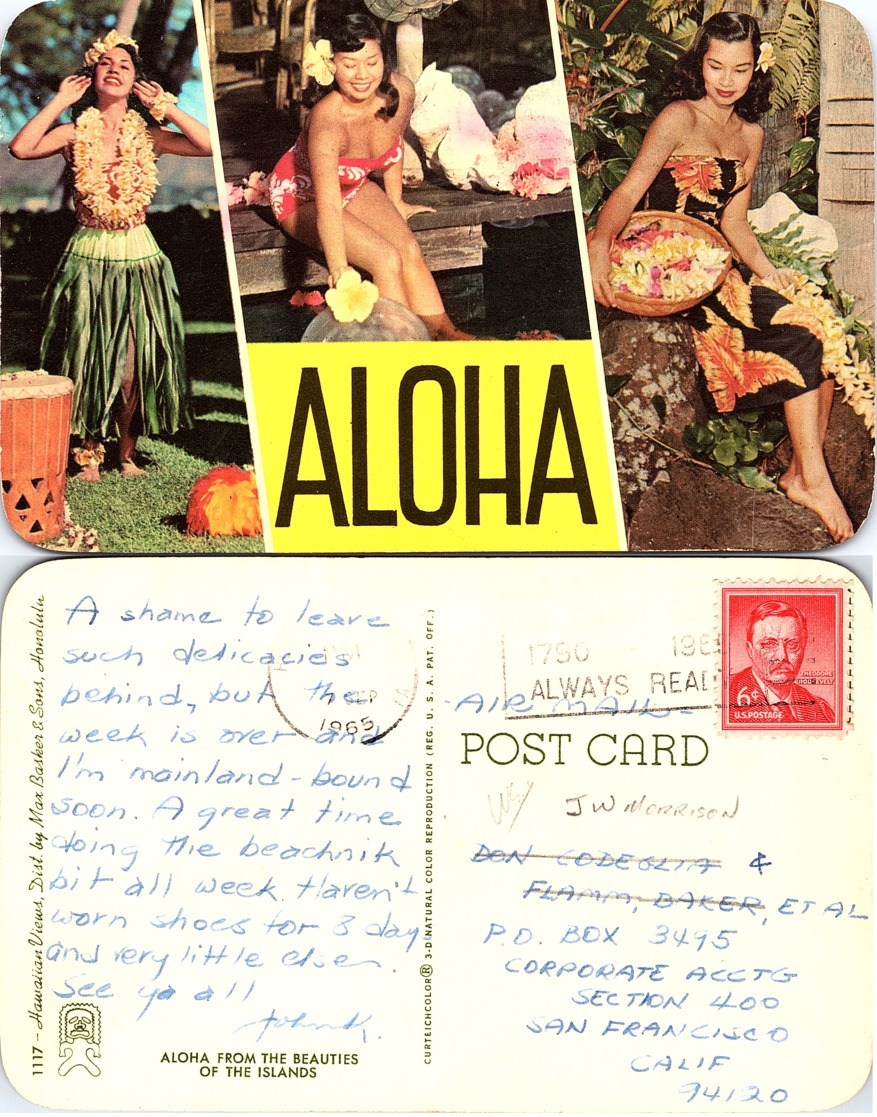 ALOHA
A shame to leave
such delicacies
behind, but the
week is over and
I'm mainland-bound
soon. A great time
doing the beachnik
bit all week. Haven't
worn shoes for 8 day
and very little else.
See ya all
John K.
ALOHA FROM THE BEAUTIES
OF THE ISLANDS
1117 – Hawaiian Views, Dist. by Max Basker & Sons, Honolulu
CURTEICHCOLOR® 3-D NATURAL COLOR REPRODUCTION (REG. U. S. A. PAT. OFF.)
SEP
1965
1790
ALWAYS READ
THEODORE
ROOSEVELT
6¢
U.S. POSTAGE
-AIR MAIL-
POST CARD
JW MORRISON
DON CODEGLIA &
FLAMM, BAKER, ET AL
P.O. BOX 3495
CORPORATE ACCTG
SECTION 400
SAN FRANCISCO
CALIF
94120